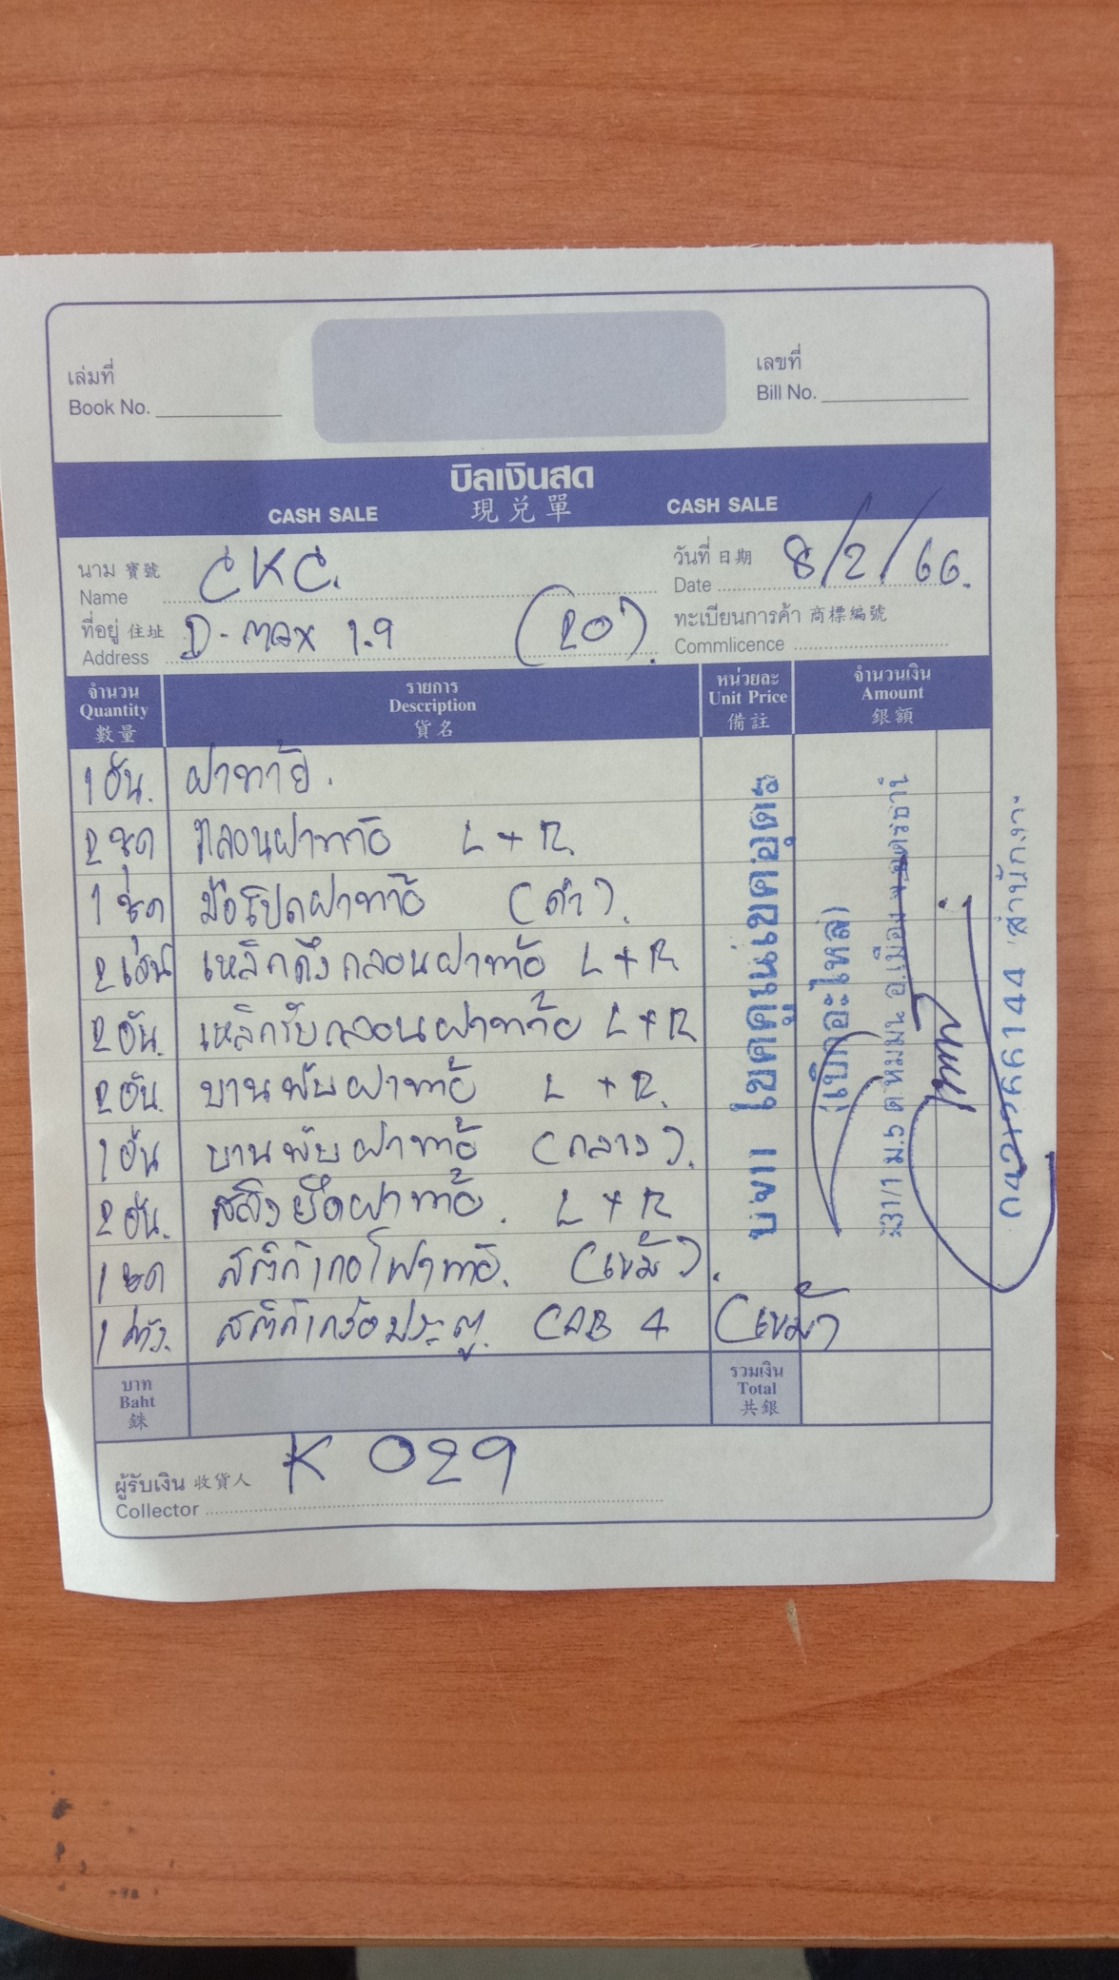 เล่มที่
Book No.
เลขที่
Bill No.
บิลเงินสด
CASH SALE 現兌單 CASH SALE
นาม 寶號
Name CKC.
วันที่ 日期
Date 8/2/66.
ที่อยู่ 住址
Address D-max 1.9 (20)
ทะเบียนการค้า 商標編號
Commlicence
จำนวน
Quantity
數量
รายการ
Description
貨名
หน่วยละ
Unit Price
備註
จำนวนเงิน
Amount
銀額
1 อัน. ฝาท้าย.
2 ชุด กลอนฝาท้าย L + R.
1 ชุด มือเปิดฝาท้าย (ดำ).
2 เส้น เหล็กดึงกลอนฝาท้าย L + R
2 อัน. เหล็กรับกลอนฝาท้าย L + R
2 อัน. บานพับฝาท้าย L + R.
1 อัน บานพับฝาท้าย (กลาง).
2 อัน. สลิงยึดฝาท้าย. L + R
1 ชุด สติ๊กเกอร์ฝาท้าย.
สติ๊กเกอร์ ประตู. CAB 4
บาท
Baht
銖
รวมเงิน
Total
共銀
ผู้รับเงิน 收貨人
Collector K 029
(เบิกอะไหล่)